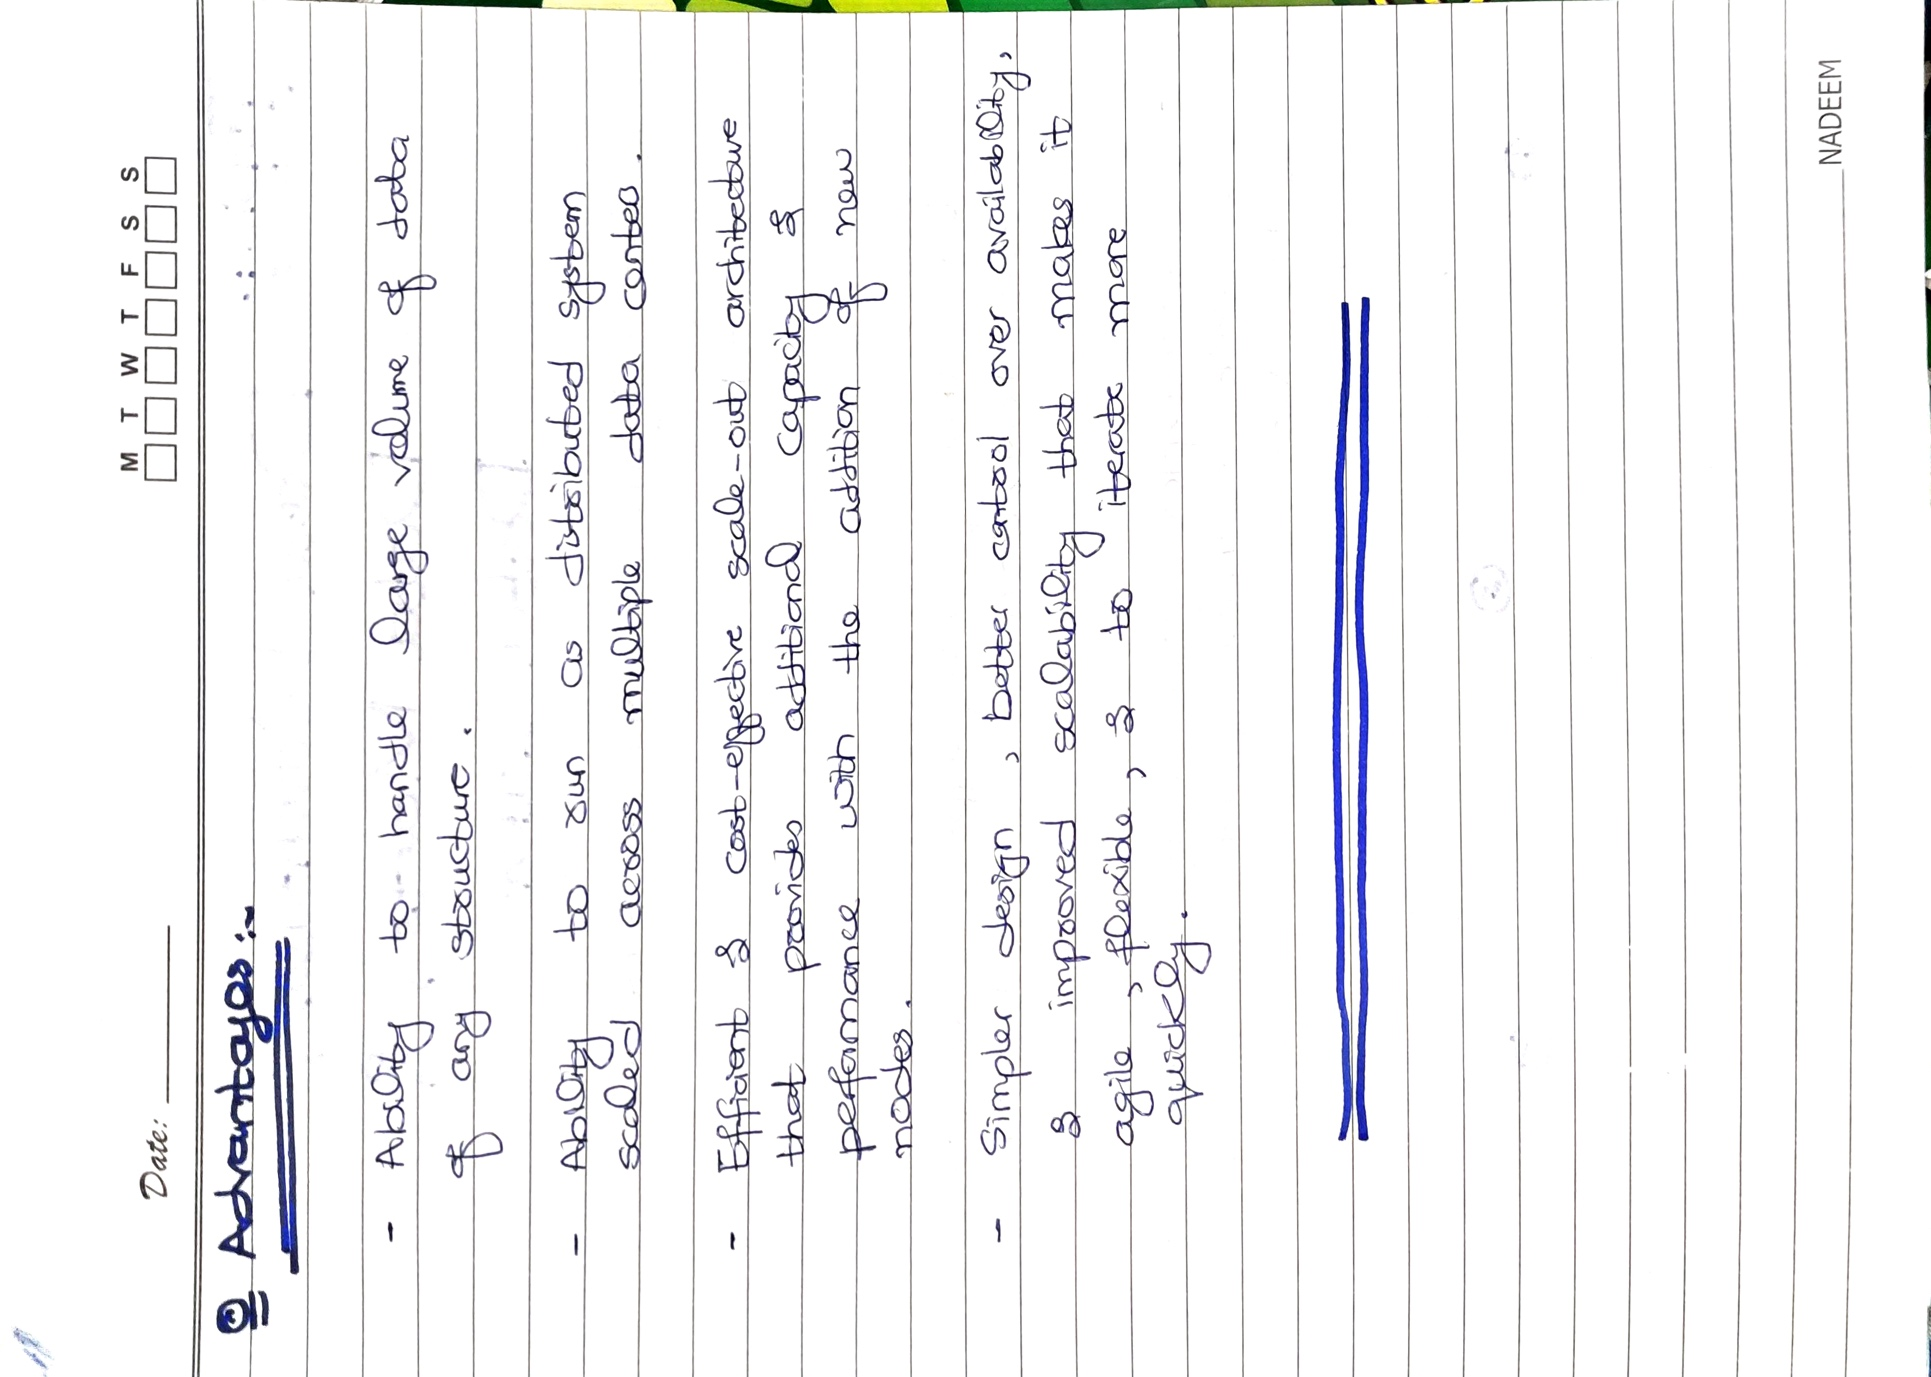 M T W T F S S
Date:
Advantages :-
- Ability to handle large volume of data
of any structure.
- Ability to run as distributed system
scaled across multiple data center.
- Efficient & cost-effective scale-out architecture
that provides additional capacity &
performance with the addition of new
nodes.
- Simpler design, better control over availability,
& improved scalability that makes it
agile, flexible, & to iterate more
quickly.
NADEEM